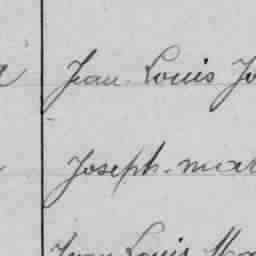 Jean Louis Jo
Joseph-mar
Jean Louis Ma